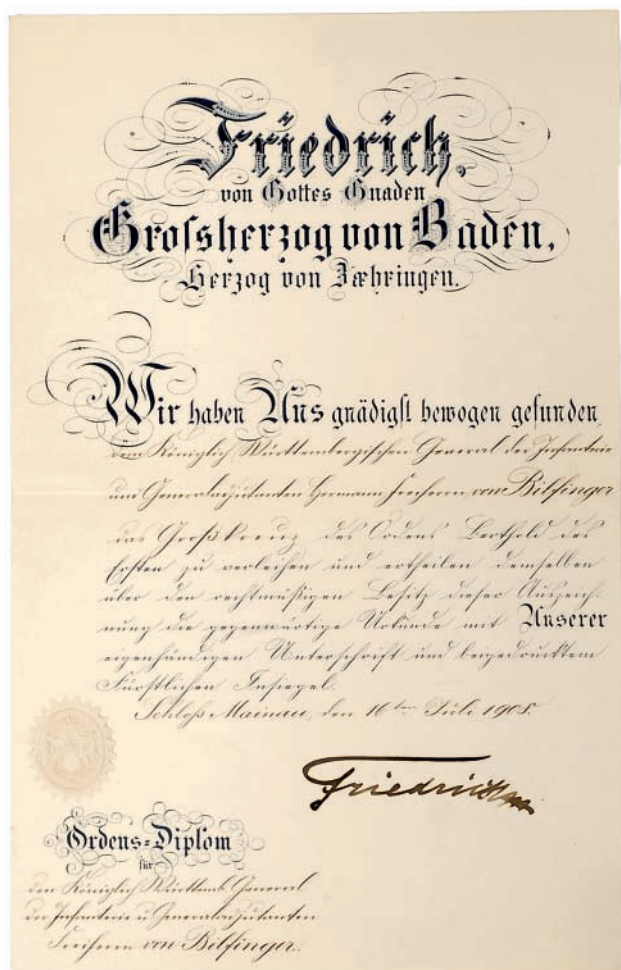 Friedrich,
von Gottes Gnaden
Grossherzog von Baden,
Herzog von Zæhringen.
Wir haben Uns gnädigst bewogen gefunden,
dem Königlich Württembergischen General der Infanterie
und Generaladjutanten Hermann Freiherrn von Bilfinger
das Großkreuz des Ordens Berthold des
Ersten zu verleihen und ertheilen demselben
über den rechtmäßigen Besitz dieser Auszeich-
nung die gegenwärtige Urkunde mit Unserer
eigenhändigen Unterschrift und beigedrucktem
Fürstlichen Insiegel.
Schloß Mainau, den 16ten Juli 1905.
Friedrich
Ordens=Diplom
für
den Königlich Württemb. General
der Infanterie u. Generaladjutanten
Freiherrn von Bilfinger.